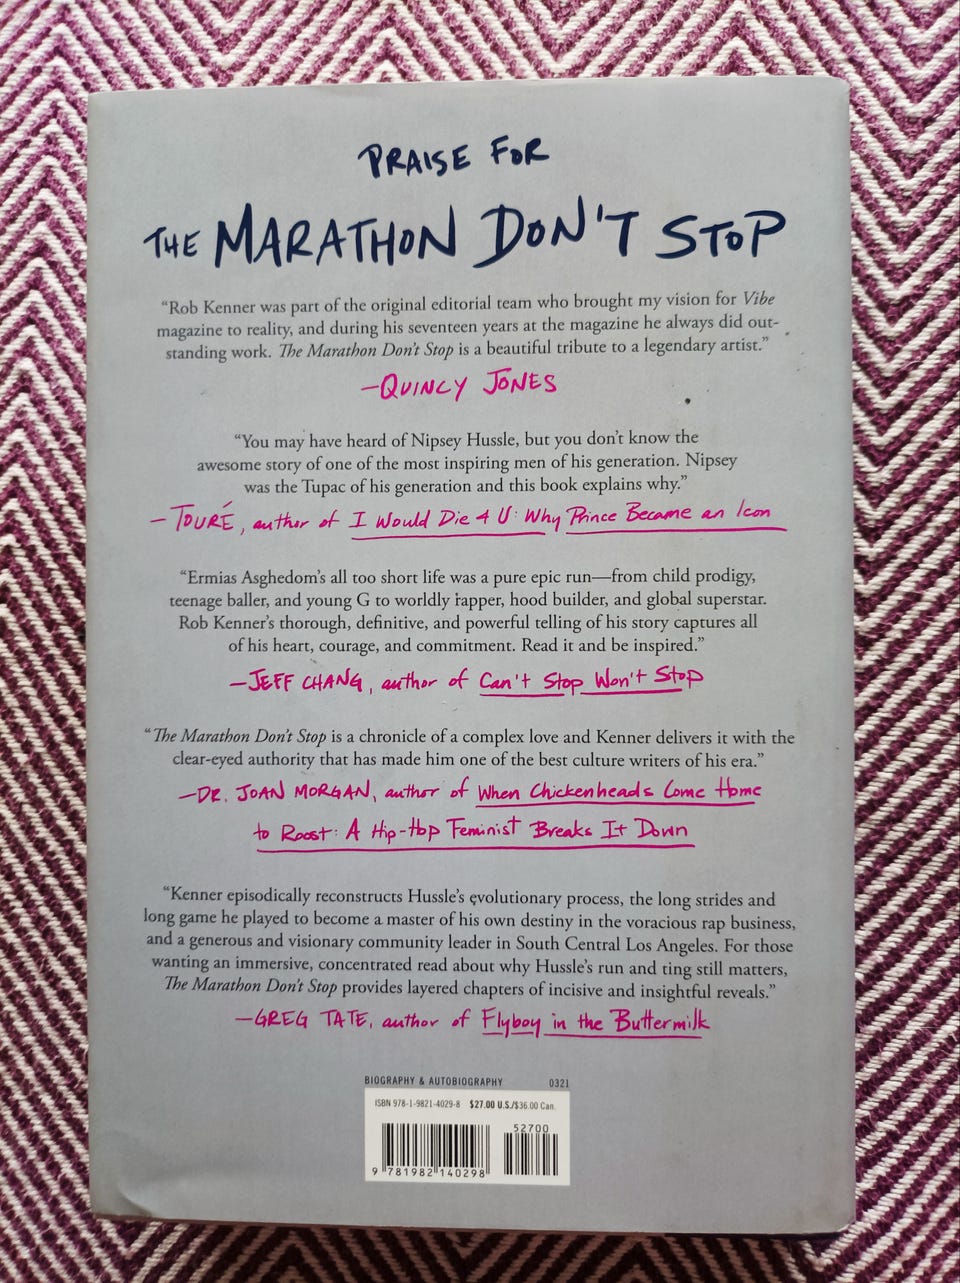 PRAISE FOR
THE MARATHON DON'T STOP
“Rob Kenner was part of the original editorial team who brought my vision for Vibe
magazine to reality, and during his seventeen years at the magazine he always did out-
standing work. The Marathon Don’t Stop is a beautiful tribute to a legendary artist.”
—QUINCY JONES
“You may have heard of Nipsey Hussle, but you don’t know the
awesome story of one of the most inspiring men of his generation. Nipsey
was the Tupac of his generation and this book explains why.”
—TOURÉ, author of I Would Die 4 U: Why Prince Became an Icon
“Ermias Asghedom’s all too short life was a pure epic run—from child prodigy,
teenage baller, and young G to worldly rapper, hood builder, and global superstar.
Rob Kenner’s thorough, definitive, and powerful telling of his story captures all
of his heart, courage, and commitment. Read it and be inspired.”
—JEFF CHANG, author of Can't Stop Won't Stop
“The Marathon Don’t Stop is a chronicle of a complex love and Kenner delivers it with the
clear-eyed authority that has made him one of the best culture writers of his era.”
—DR. JOAN MORGAN, author of When Chickenheads Come Home
to Roost: A Hip-Hop Feminist Breaks It Down
“Kenner episodically reconstructs Hussle’s evolutionary process, the long strides and
long game he played to become a master of his own destiny in the voracious rap business,
and a generous and visionary community leader in South Central Los Angeles. For those
wanting an immersive, concentrated read about why Hussle’s run and ting still matters,
The Marathon Don’t Stop provides layered chapters of incisive and insightful reveals.”
—GREG TATE, author of Flyboy in the Buttermilk
BIOGRAPHY & AUTOBIOGRAPHY 0321
ISBN 978-1-9821-4029-8 $27.00 U.S./$36.00 Can.
52700
9 781982 140298